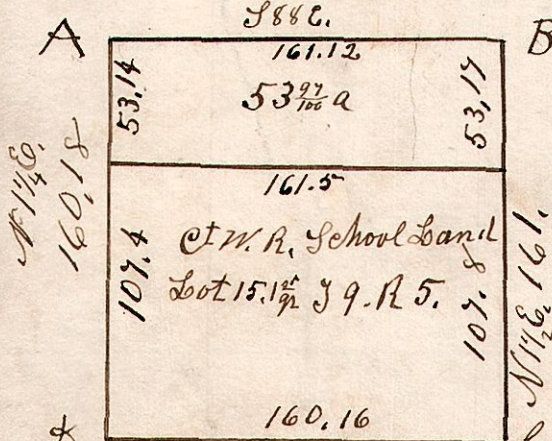 S88E.
A
B
161.12
53.14
53 97/100 a
53,17
N1¼E
160.18
161.5
107.4
C W. R. School Land
Lot 15.1st qr T 9. R 5.
107.8
N1½E. 161.
160.16